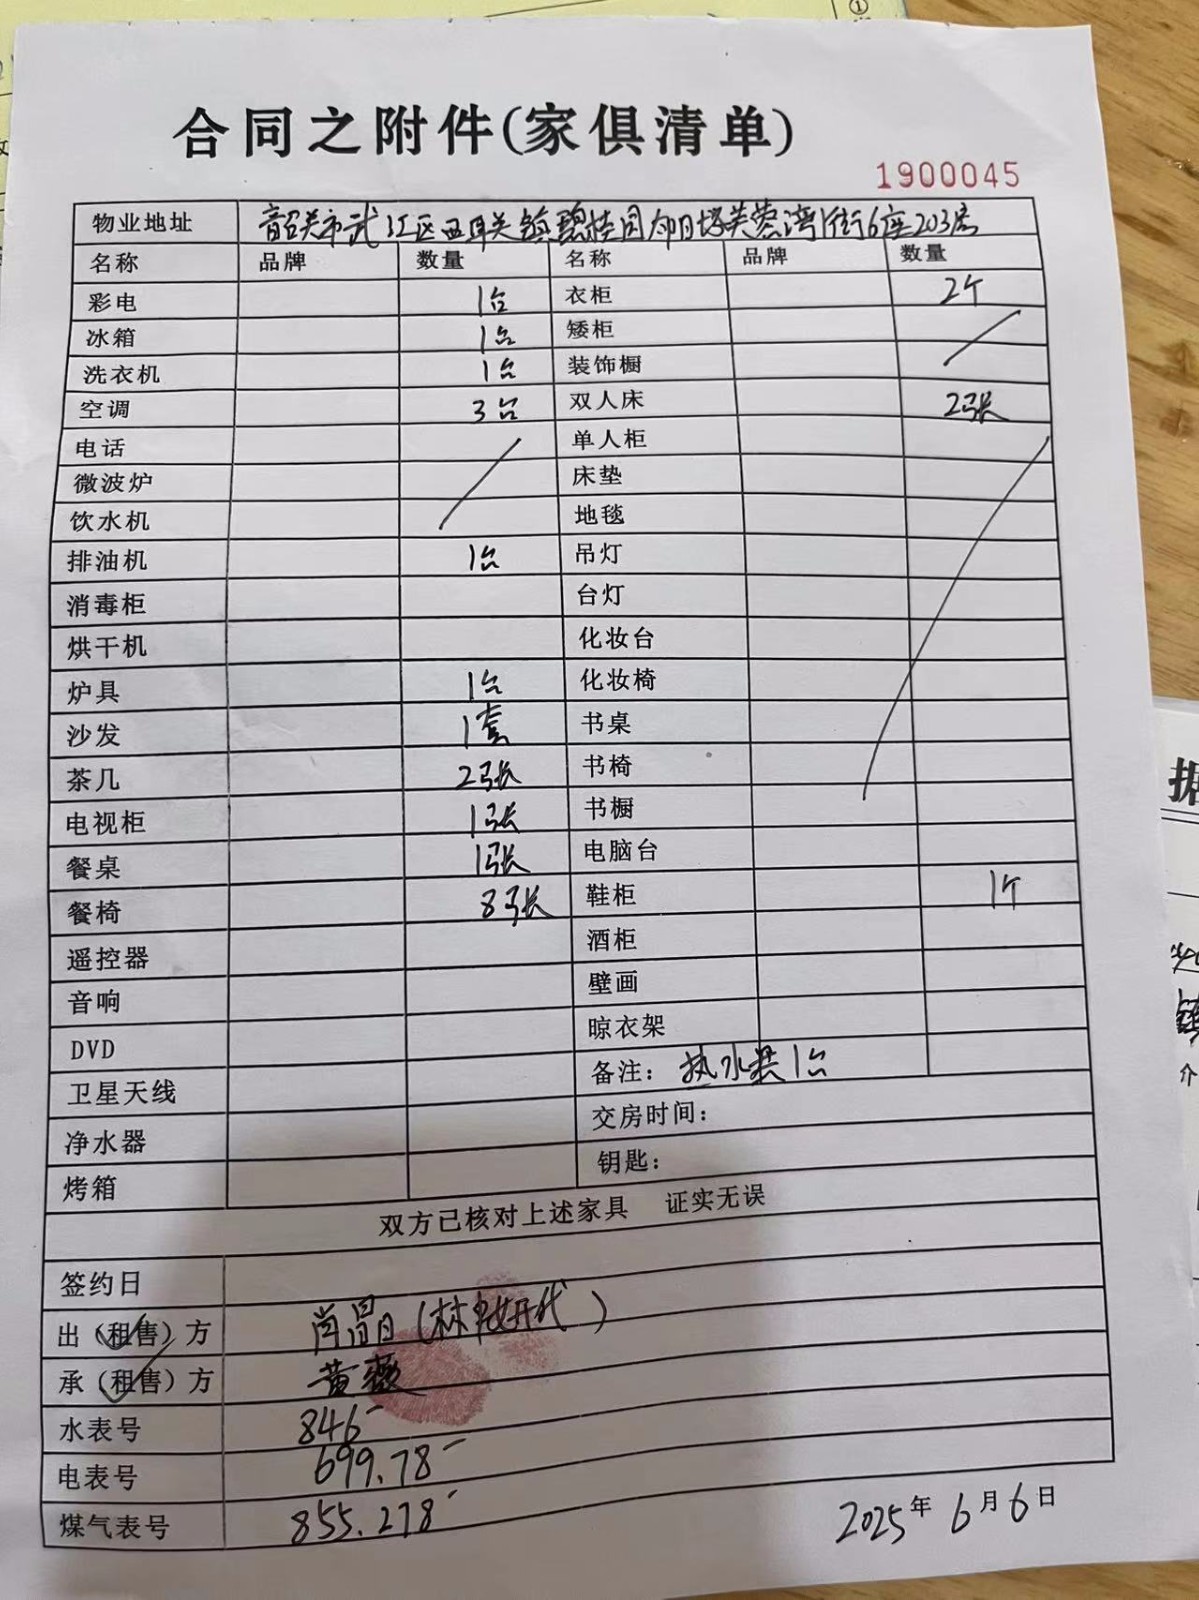 合同之附件(家俱清单)
1900045
物业地址 韶关市武江区西联镇碧桂园太阳城芙蓉湾1街6座203房
名称 品牌 数量 名称 品牌 数量
彩电 1台 衣柜 2个
冰箱 1台 矮柜
洗衣机 1台 装饰橱
空调 3台 双人床 2张
电话 单人柜
微波炉 床垫
饮水机 地毯
排油机 1台 吊灯
消毒柜 台灯
烘干机 化妆台
炉具 1台 化妆椅
沙发 1套 书桌
茶几 2张 书椅
电视柜 1张 书橱
餐桌 1张 电脑台
餐椅 8张 鞋柜 1个
遥控器 酒柜
音响 壁画
DVD 晾衣架
卫星天线 备注：热水器1台
净水器 交房时间：
烤箱 钥匙：
双方已核对上述家具 证实无误
签约日
出（租售）方 肖晶（林 代）
承（租售）方 黄薇
水表号 846
电表号 699.78
煤气表号 855.278
2025年6月6日
据
介
①